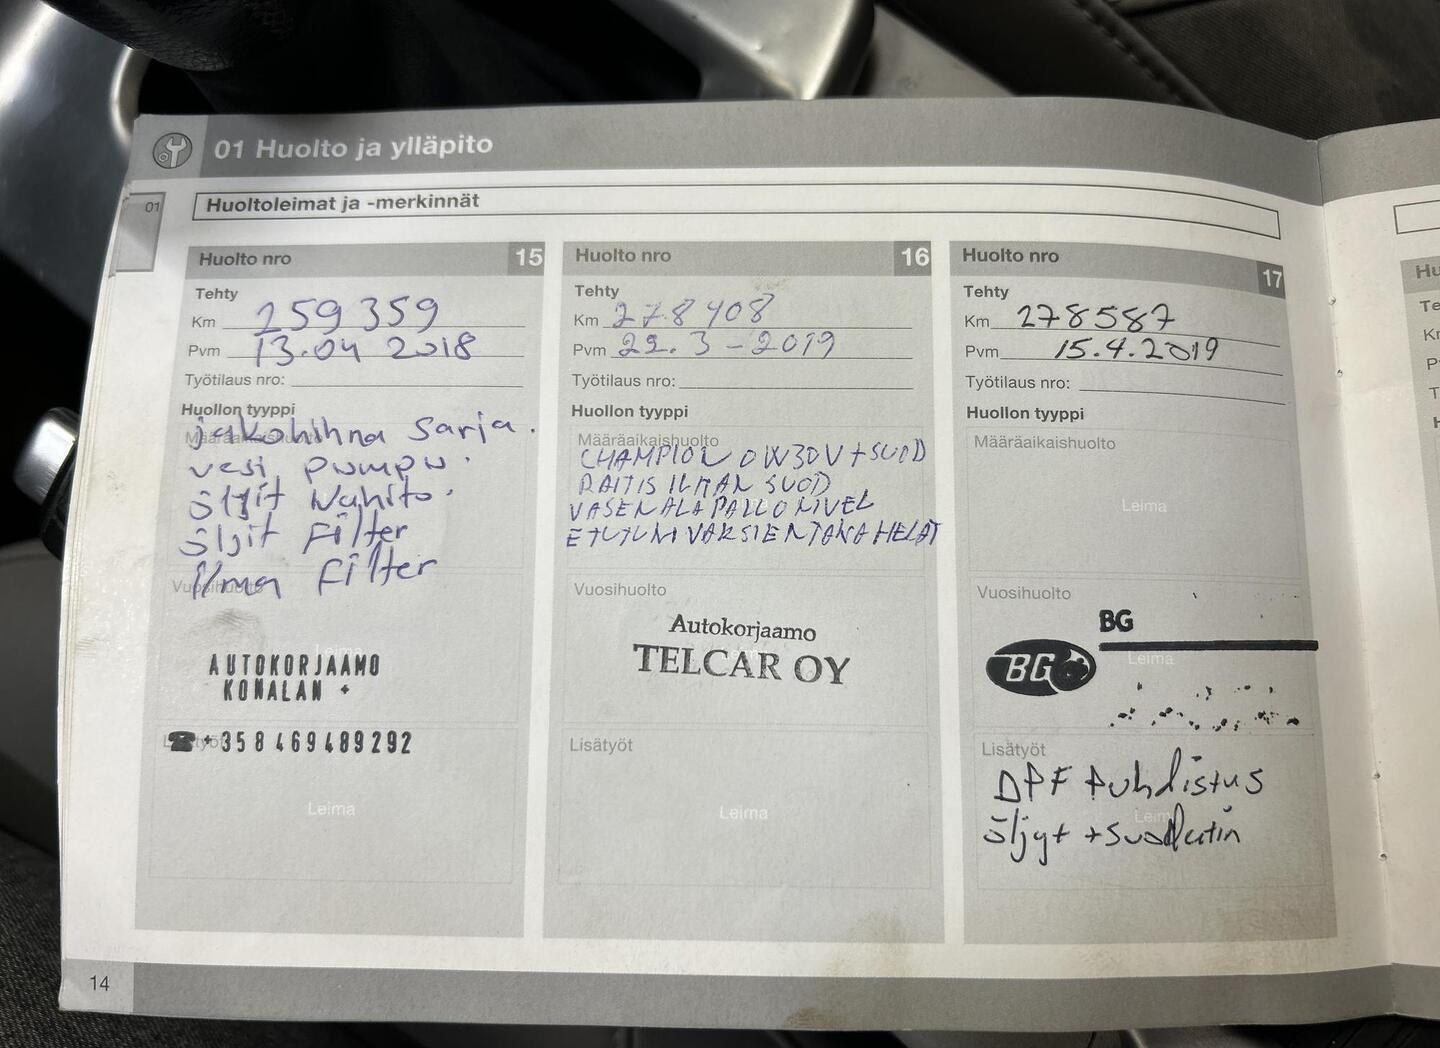 01 Huolto ja ylläpito
01
Huoltoleimat ja -merkinnät
Huolto nro 15
Tehty
Km 259359
Pvm 13.04 2018
Työtilaus nro:
Huollon tyyppi
Määräaikaishuolto
jakohihna sarja.
vesi pumpu.
öljit
öljit Filter
Vuosihuolto
ilma Filter
Leima
AUTOKORJAAMO
KONALAN +
Lisätyöt
☎ +358 469489292
Leima
Huolto nro 16
Tehty
Km 278408
Pvm 22.3-2019
Työtilaus nro:
Huollon tyyppi
Määräaikaishuolto
CHAMPION 0W30V+SUOD
RAITIS ILMAN SUOD
VASEN ALAPALLONIVEL
Vuosihuolto
Autokorjaamo
TELCAR OY
Lisätyöt
Leima
Huolto nro 17
Tehty
Km 278587
Pvm 15.4.2019
Työtilaus nro:
Huollon tyyppi
Määräaikaishuolto
Leima
Vuosihuolto
BG
BG
Leima
Lisätyöt
DPF Puhdistus
Leima
öljyt + suodatin
14
Hu
Te